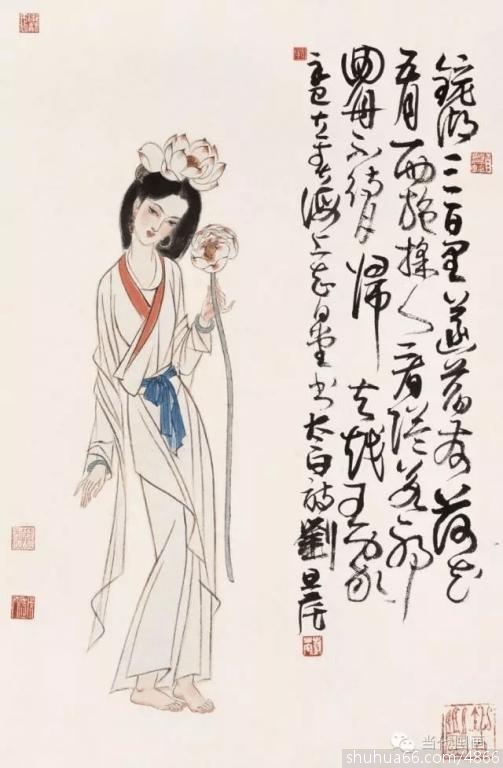 鏡湖三百里菡萏發荷花
五月西施採人看隘若耶
回舟不待月歸去越王家
海上 書太白詩劉旦宅
shuhua66.com/4866